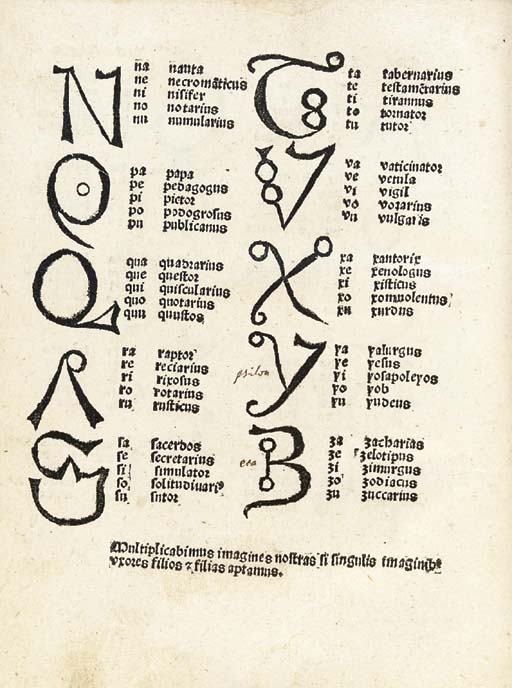 N
na nauta
ne necromāticus
ni nisifer
no notarius
nu numularius
P
pa papa
pe pedagogus
pi pictor
po podogrosus
pu publicanus
Q
qua quadrarius
que questor
qui quiscularius
quo quotarius
quu quustos
R
ra raptor
re reciarius
ri rixosus
ro rotarius
ru rusticus
S
sa sacerdos
se secretarius
si simulator
so solitudivariꝰ
su sutor
T
ta tabernarius
te testamētarius
ti tirannus
to tornator
tu tutor
V
va vaticinator
ve vetula
vi vigil
vo vorarius
vu vulgaris
X
xa xantorix
xe xenologus
xi xisticus
xo xomuolentus
xu xurdus
Y
psilon
ya yalurgus
ye yesus
yi yosapoleyos
yo yob
yu yudeus
Z
za zacharias
ze zelotipus
zi zimurgus
zo zodiacus
zu zuccarius
Multiplicabimus imagines nostras si singulis imaginibꝰ
vxores filios ⁊ filias aptamus.